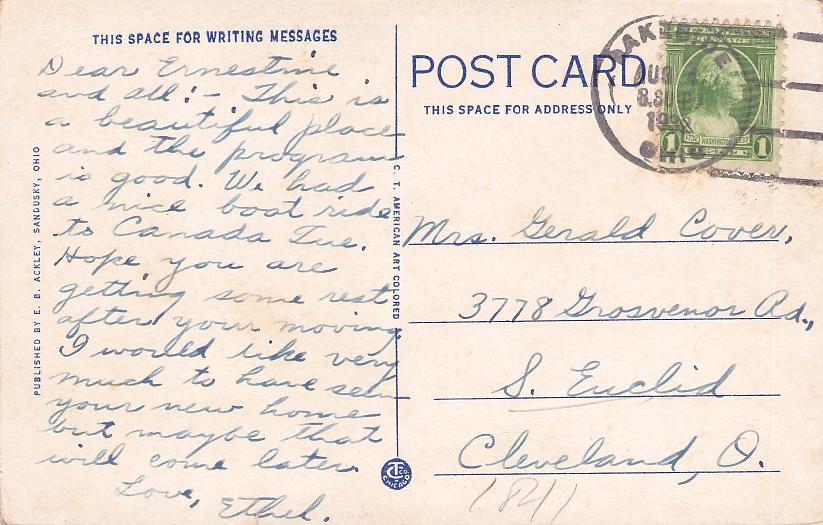 THIS SPACE FOR WRITING MESSAGES
Dear Ernestine
and all:- This is
a beautiful place
and the program
is good. We had
a nice boat ride
to Canada Tue.
Hope you are
getting some rest
after your moving.
I would like very
much to have seen
your new home
but maybe that
will come later.
Love, Ethel.
PUBLISHED BY E. B. ACKLEY, SANDUSKY, OHIO
C. T. AMERICAN ART COLORED
POST CARD
THIS SPACE FOR ADDRESS ONLY
AUG
OHIO
1732 WASHINGTON
1 1
Mrs. Gerald Cover,
3778 Grosvenor Rd.,
S. Euclid
Cleveland, O.
1841
CHICAGO